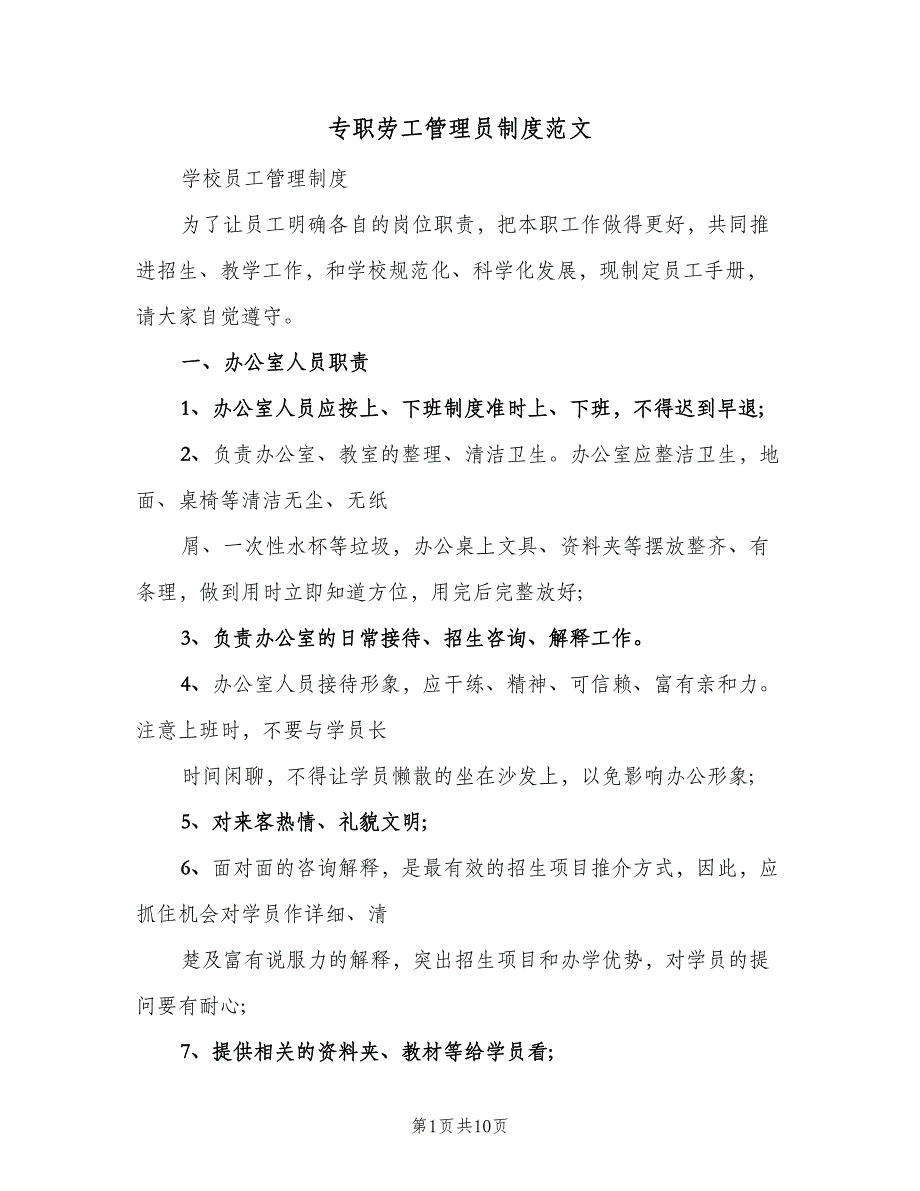 专职劳工管理员制度范文
学校员工管理制度
为了让员工明确各自的岗位职责，把本职工作做得更好，共同推
进招生、教学工作，和学校规范化、科学化发展，现制定员工手册，
请大家自觉遵守。
一、办公室人员职责
1、办公室人员应按上、下班制度准时上、下班，不得迟到早退;
2、负责办公室、教室的整理、清洁卫生。办公室应整洁卫生，地
面、桌椅等清洁无尘、无纸
屑、一次性水杯等垃圾，办公桌上文具、资料夹等摆放整齐、有
条理，做到用时立即知道方位，用完后完整放好;
3、负责办公室的日常接待、招生咨询、解释工作。
4、办公室人员接待形象，应干练、精神、可信赖、富有亲和力。
注意上班时，不要与学员长
时间闲聊，不得让学员懒散的坐在沙发上，以免影响办公形象;
5、对来客热情、礼貌文明;
6、面对面的咨询解释，是最有效的招生项目推介方式，因此，应
抓住机会对学员作详细、清
楚及富有说服力的解释，突出招生项目和办学优势，对学员的提
问要有耐心;
7、提供相关的资料夹、教材等给学员看;
第1页共10页